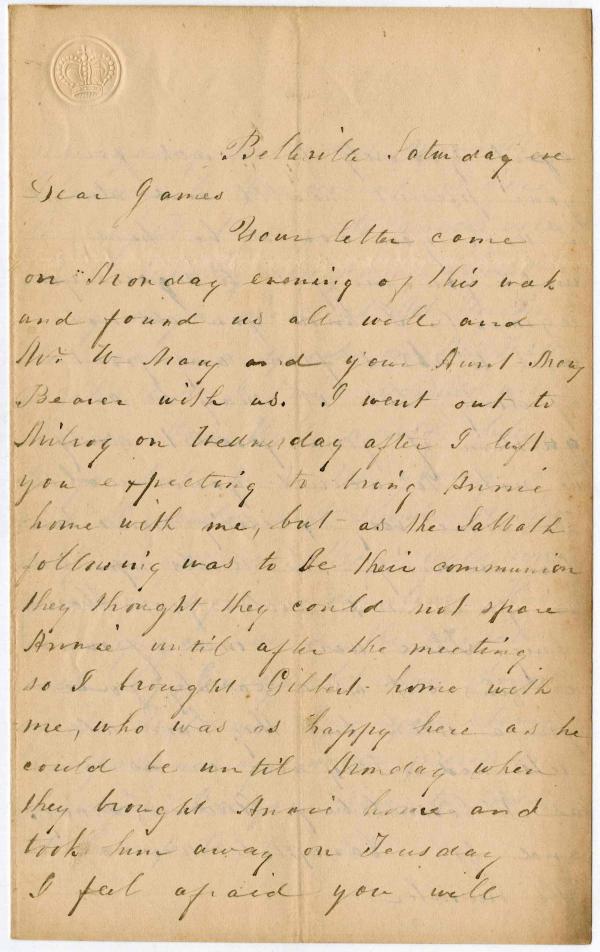 Belleville Saturday eve
Dear James
Your letter came
on Monday evening of this week
and found us all well and
Mr. W May and your Aunt Mary
Beaver with us. I went out to
Milroy on Wednesday after I left
you expecting to bring Annie
home with me, but as the Sabbath
following was to be their communion
they thought they could not spare
Annie until after the meeting
so I brought Gilbert home with
me, who was as happy here as he
could be until Monday when
they brought Annie home and
took him away on Teusday
I feel afraid you will